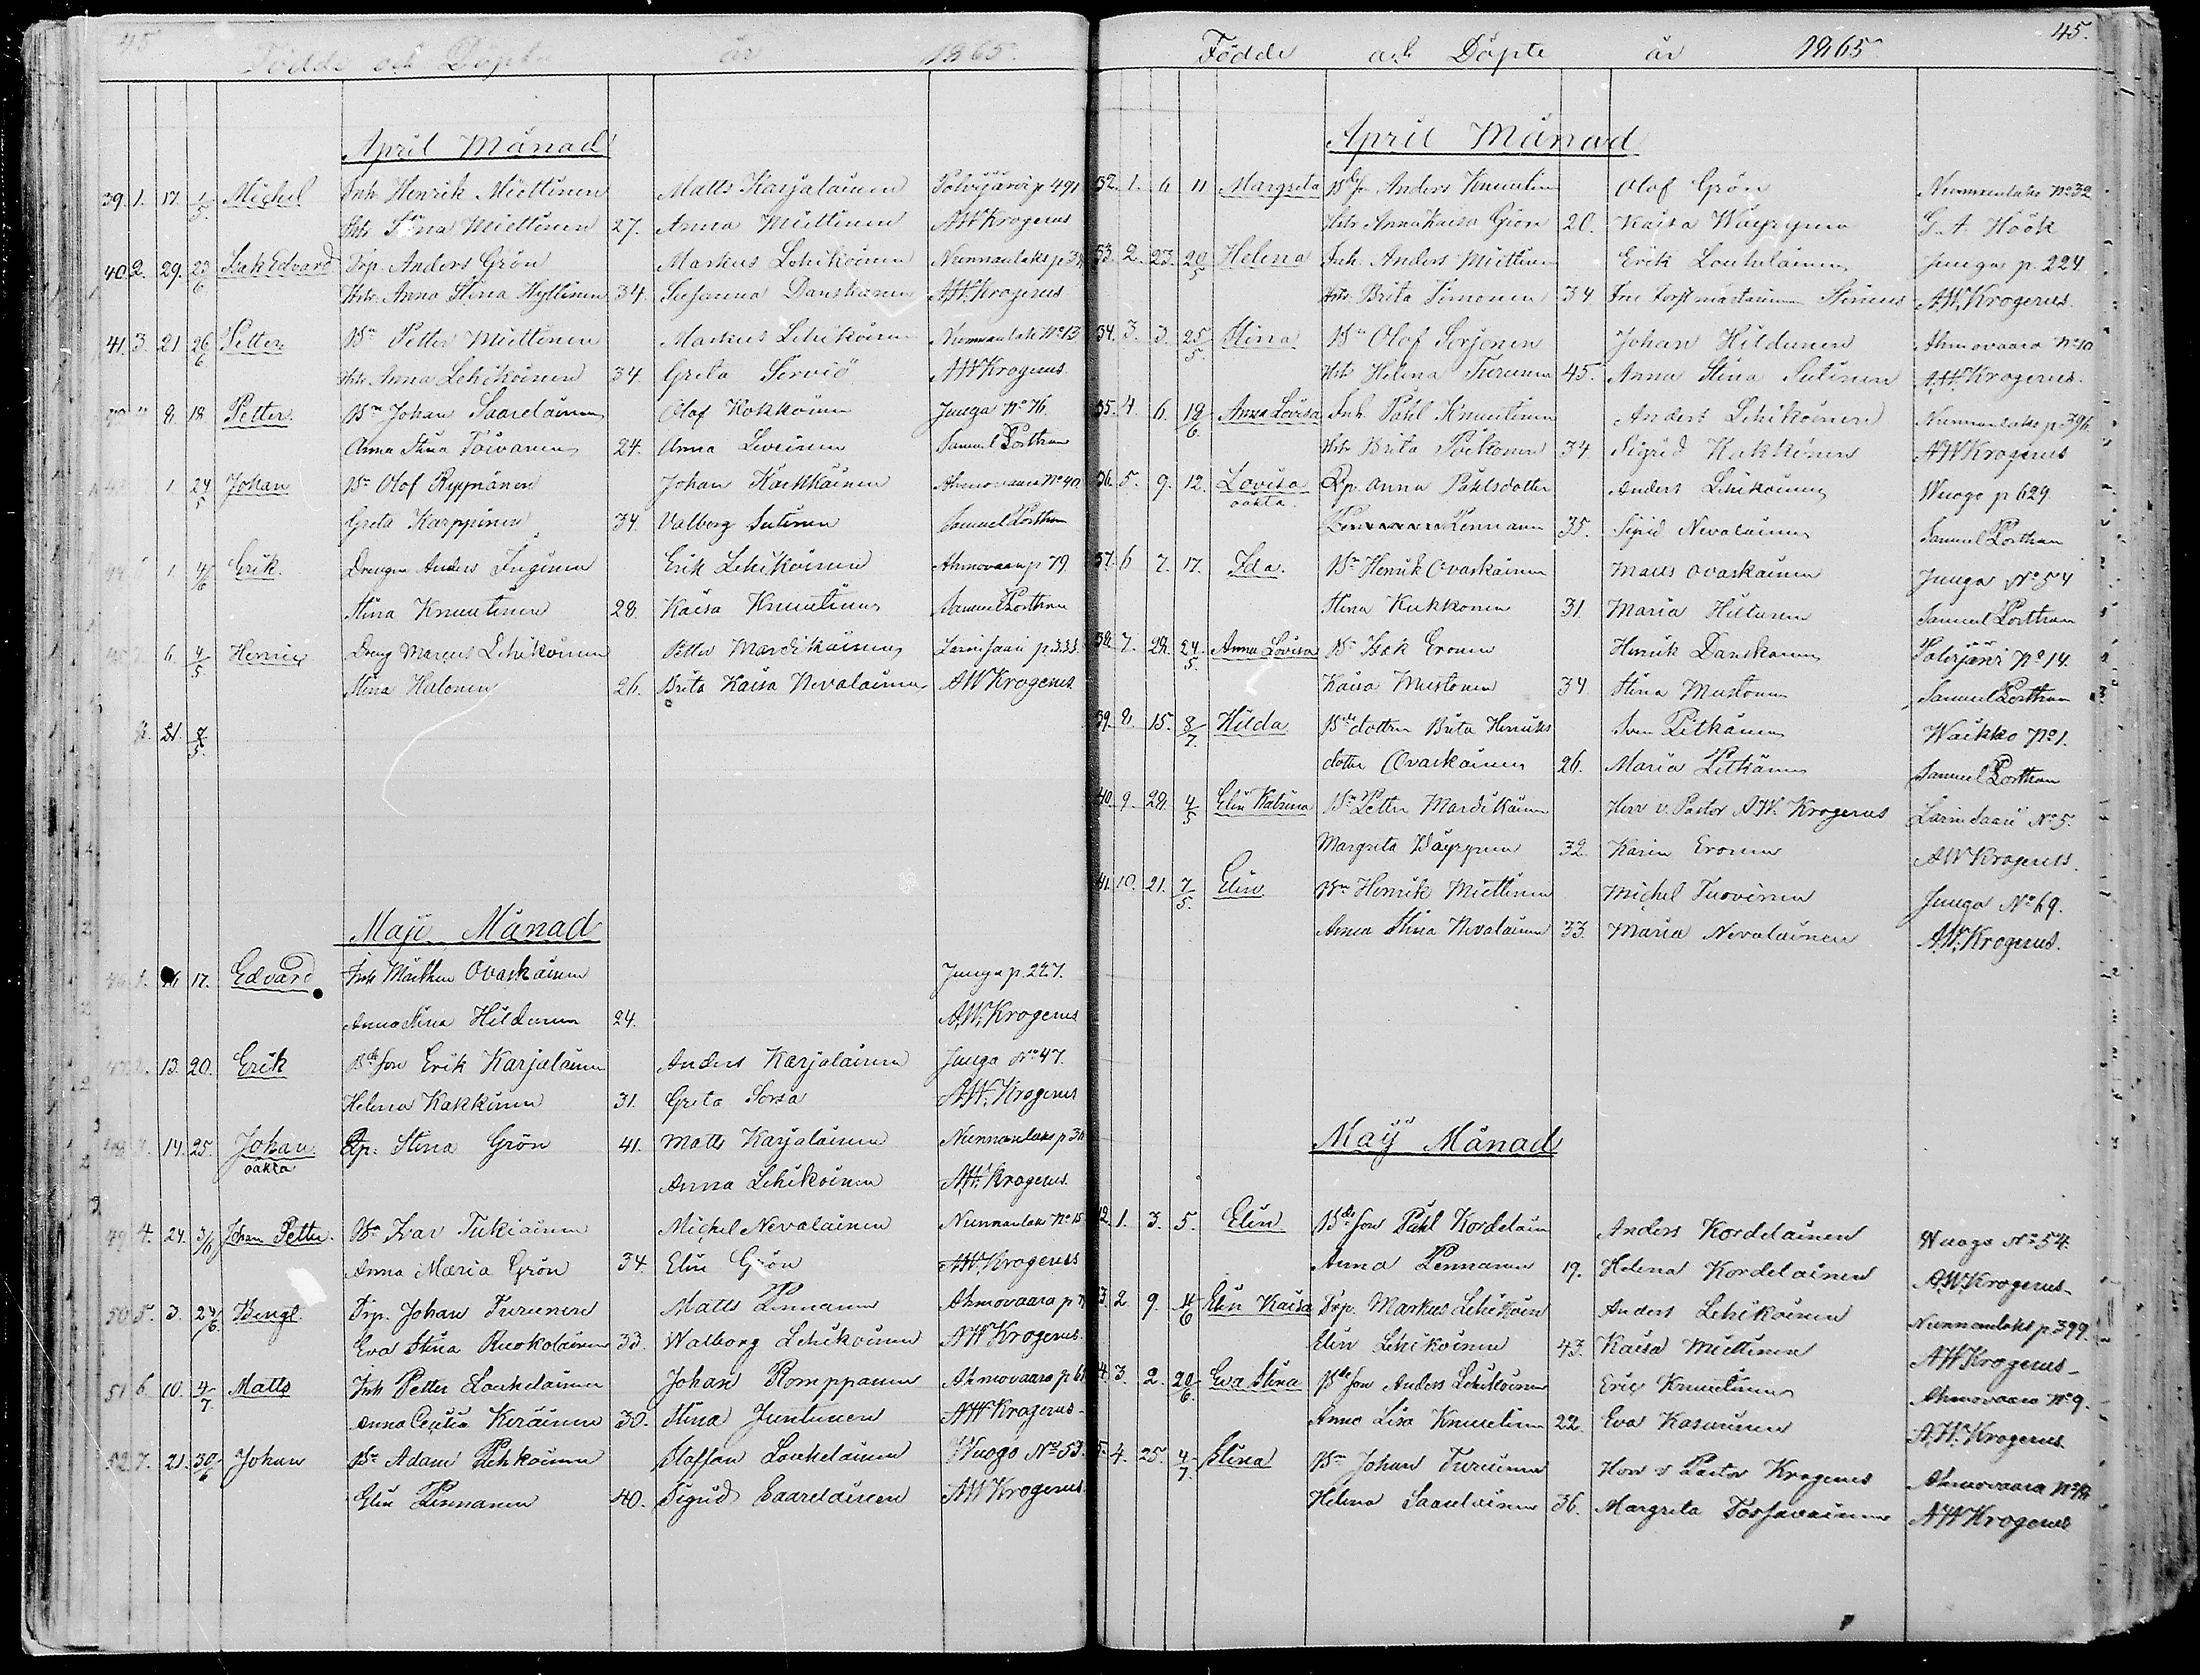 45
Födde och Döpte år 1865.
April Månad
39. 1. 17. 1/5 Michel Inh Henrik Miettinen Matts Karjalainen Polvijärvi p 491
Hstr Stina Miettinen 27. Anna Miettinen AW Krogerus
40. 2. 29. 23/6 Isak Edvard Trp. Anders Grön Markus Lehikoinen Nunnanlaks p 3
Hstr. Anna Stina Kyllinen 34. Susanna Danskanen AW. Krogerus
41. 3. 21 26/6 Petter Bn Petter Miettinen Markus Lehikoinen Nunnanlaks No 13
Hstr Anna Lehikoinen 34. Greta Serviö AW Krogerus
8. 18. Petter. Bn Johan Saarelainen Olof Kokkonen Juuga No 76.
Anna Stina Toivanen 24. Anna Leveinen Samuel Porthan
1. 24/5 Johan Bn Olof Ryynänen Johan Karkkäinen Ahmovaara No 40
Greta Karppinen 34. Valborg Sutinen Samuel Porthan
1. 4/6 Erik. Drengen Anders Inginen Erik Lehikoinen Ahmovaara p 79.
Stina Knuutinen 28. Kaisa Knuutinen Samuel Porthan
6. 4/5 Henric Dreng Marcus Lehikoinen Petter Mardikainen Larinsaari p. 333.
Stina Halonen 26. Brita Kaisa Nevalainen AW Krogerus
21. 8/5.
Maji Månad
46. 1. 17. Edvard Inh Matthen Ovaskainen Juuga p. 227.
Anna Stina Hildunen 24. A.W. Krogerus
47. 2. 13. 20. Erik Bde son Erik Karjalainen Anders Karjalainen Juuga No 47.
Helena Kakkinen 31. Greta Sorsa AW. Krogerus
48. 3. 14. 25. Johan Qp. Stina Grön 41. Matts Karjalainen Nunnanlaks p 3
oäkta Anna Lehikoinen AW. Krogerus.
49 4. 24. 3/6 Johan Petter. Bn Ivar Tukiainen Michel Nevalainen Nunnanlaks No 15
Anna Maria Grön 34. Elin Grön AW. Krogerus
50 5. 3. 24/6. Bengt. Trp. Johan Turunen Matts Pennanen Ahmovaara p
Eva Stina Ruokolainen 33. Walborg Lehikoinen AW Krogerus.
51 6. 10. 4/7 Matts Inh Petter Loukelainen Johan Romppanen Ahmovaara p 6
Anna Cecilia Keräinen 30. Stina Juntunen AW Krogerus
52 7. 21. 30/6 Johan Bn Adam Pehkonen Staffan Loukelainen Wuogo No 53.
Elin Pennanen 40. Sigrid Saarelainen AW Krogerus
45.
Födde och Döpte år 1865
April Månad
32. 1. 6 11 Margreta Bde s. Anders Knuutinen Olof Grön Nunnanlaks No 32
Hstr Anna Kaisa Grön 20. Kaisa Wäyrynen G. A. Höök
33. 2. 23. 20/5 Helena Inh. Anders Miettinen Erik Loukelainen Juuga p. 224.
Hstr Brita Simonen 34 Fru Forstmästarinnan AW. Krogerus.
34. 3. 3. 25/5 Stina Bn Olof Sorjonen Johan Hildunen Ahmovaara No 10
Hstr Helena Turunen 45. Anna Stina Sutinen AW. Krogerus.
35. 4. 6. 18/6 Anna Lovisa Inh. Påhl Knuutinen Anders Lehikoinen Nunnanlaks p 396.
Hstr Brita Poikonen 34. Sigrid Kukkonen AW Krogerus
36. 5. 9. 12. Lovisa Qp. Anna Påhlsdotter Anders Lehikoinen Wuogo p 629.
oäkta. Pennanen 35. Sigrid Nevalainen Samuel Porthan
37. 6 7. 17. Ida. Bn Henrik Ovaskainen Matts Ovaskainen Juuga No 54
Stina Kukkonen 31 Maria Hiltunen Samuel Porthan
38. 7. 28. 24/5. Anna Lovisa Bn Isak Eronen Henrik Danskanen Polvijärvi No 14.
Kaisa Mustonen 34 Stina Mustonen Samuel Porthan
39. 8. 15. 8/7. Hilda Bde dottren Brita Henriks Sven Pitkänen Waikko No 1.
dotter Ovaskainen 26. Maria Pitkänen Samuel Porthan
40. 9. 28. 4/5 Elin Katrina Bn Petter Mardikainen Herr v. Pastor A.W. Krogerus Larinsaari No 5.
Margreta Wäyrynen 32. Karin Eronen AW Krogerus.
41. 10. 21. 7/5. Elin Bn Henrik Miettinen Michel Tuovinen Juuga No 69.
Anna Stina Nevalainen 33. Maria Nevalainen A.W. Krogerus.
Maij Månad
42. 1. 3. 5. Elin Bde son Påhl Kordelain Anders Kordelainen Wuogo No 54.
Anna Pennanen 19. Helena Kordelainen A.W. Krogerus
43. 2 9. 4/6 Elin Kaisa Trp. Markus Lehikoin Anders Lehikoinen Nunnanlaks p 399.
Elin Lehikoinen 43. Kaisa Miettinen AW Krogerus
4. 3. 2. 20/6 Eva Stina Bde son Anders Lehikoinen Eric Knuutinen Ahmovaara No 9.
Anna Lisa Knuutinen 22. Eva Kasurinen A.W. Krogerus
5. 4. 25. 4/7 Stina Bn Johan Turunen Herr v Pastor Krogerus Ahmovaara No
Helena Saarelainen 36. Margreta Tossavainen AW Krogerus